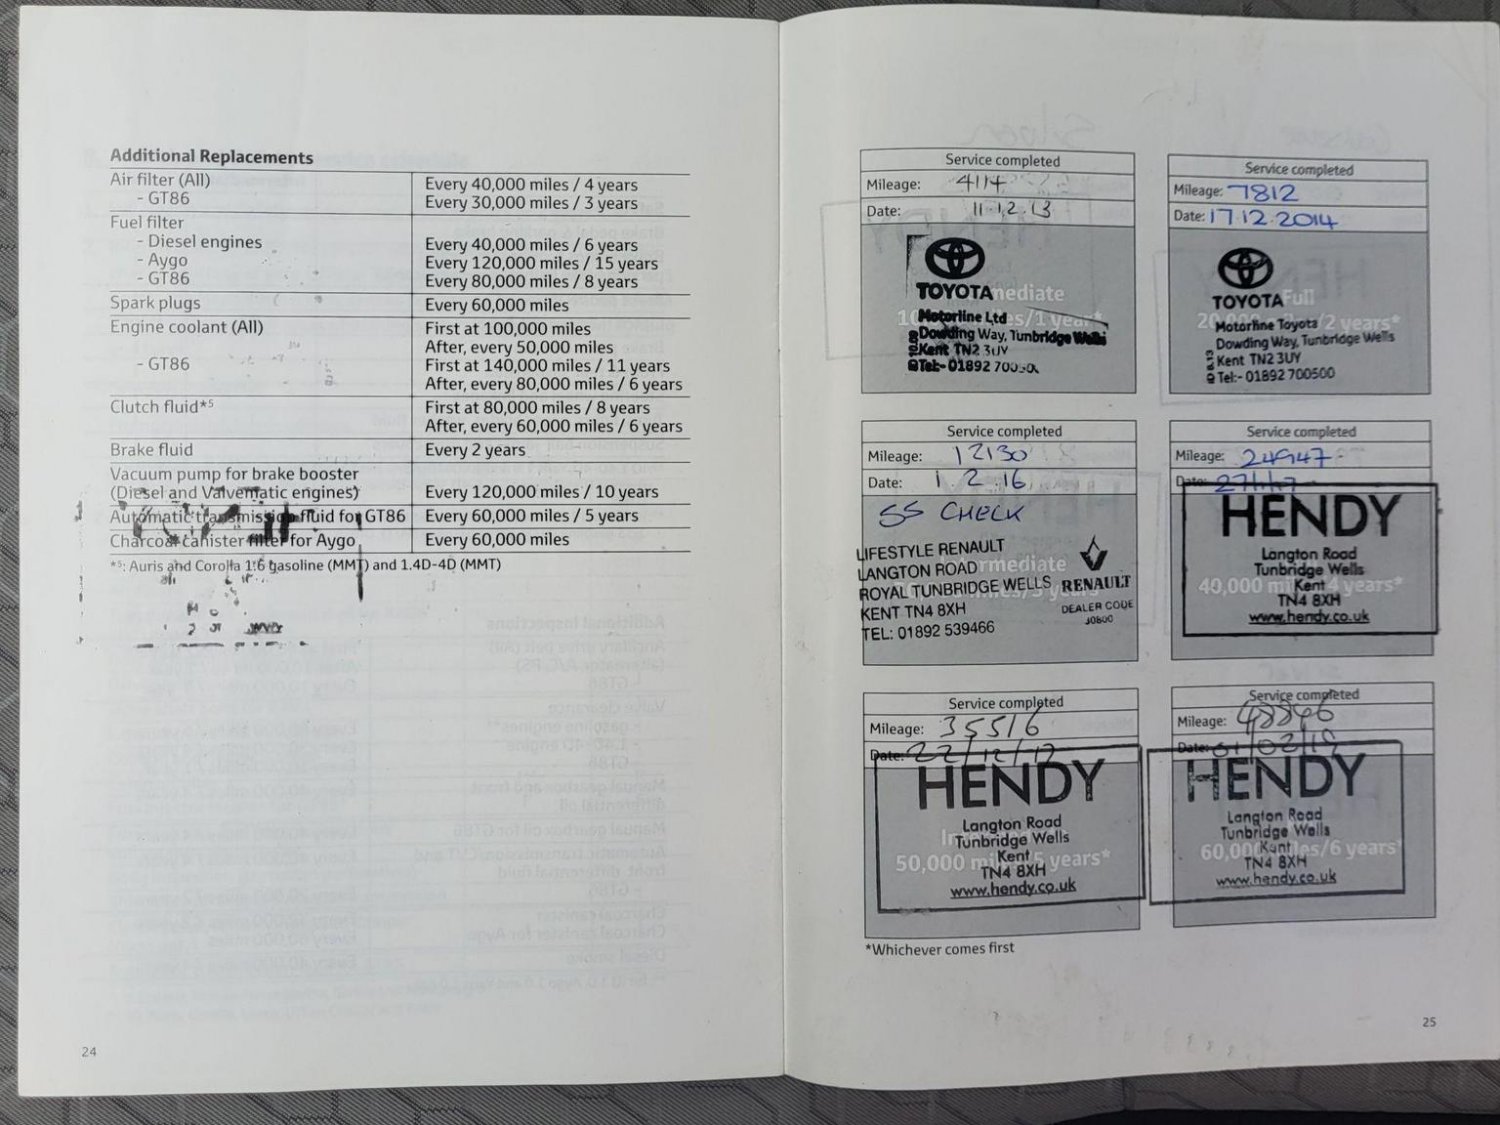 Additional Replacements
Air filter (All)
- GT86
Every 40,000 miles / 4 years
Every 30,000 miles / 3 years
Fuel filter
- Diesel engines
- Aygo
- GT86
Every 40,000 miles / 6 years
Every 120,000 miles / 15 years
Every 80,000 miles / 8 years
Spark plugs
Every 60,000 miles
Engine coolant (All)
- GT86
First at 100,000 miles
After, every 50,000 miles
First at 140,000 miles / 11 years
After, every 80,000 miles / 6 years
Clutch fluid*5
First at 80,000 miles / 8 years
After, every 60,000 miles / 6 years
Brake fluid
Every 2 years
Vacuum pump for brake booster
(Diesel and Valvematic engines)
Every 120,000 miles / 10 years
Automatic transmission fluid for GT86
Every 60,000 miles / 5 years
Charcoal canister filter for Aygo
Every 60,000 miles
*5: Auris and Corolla 1.6 gasoline (MMT) and 1.4D-4D (MMT)
24
Service completed
Mileage: 4114
Date: 11.12.13
TOYOTA
Motorline Ltd
Dowding Way, Tunbridge Wells
Kent TN2 3UY
Tel:- 01892
Service completed
Mileage: 7812
Date: 17.12.2014
Full
TOYOTA
20,000 miles/2 years*
Motorline Toyota
Dowding Way, Tunbridge Wells
Kent TN2 3UY
Tel:- 01892 700500
Service completed
Mileage: 12130
Date: 1.2.16
SS CHECK
LIFESTYLE RENAULT
LANGTON ROAD
ROYAL TUNBRIDGE WELLS
KENT TN4 8XH
TEL: 01892 539466
RENAULT
DEALER CODE
Service completed
Mileage: 24947
Date:
HENDY
Langton Road
Tunbridge Wells
Kent
TN4 8XH
www.hendy.co.uk
40,000 miles/4 years*
Service completed
Mileage: 35516
Date: 22/12/17
HENDY
Langton Road
Tunbridge Wells
Kent
TN4 8XH
www.hendy.co.uk
50,000 miles/5 years*
Service completed
Mileage: 48846
Date: 01/02/19
HENDY
Langton Road
Tunbridge Wells
Kent
TN4 8XH
www.hendy.co.uk
60,000 miles/6 years*
*Whichever comes first
25